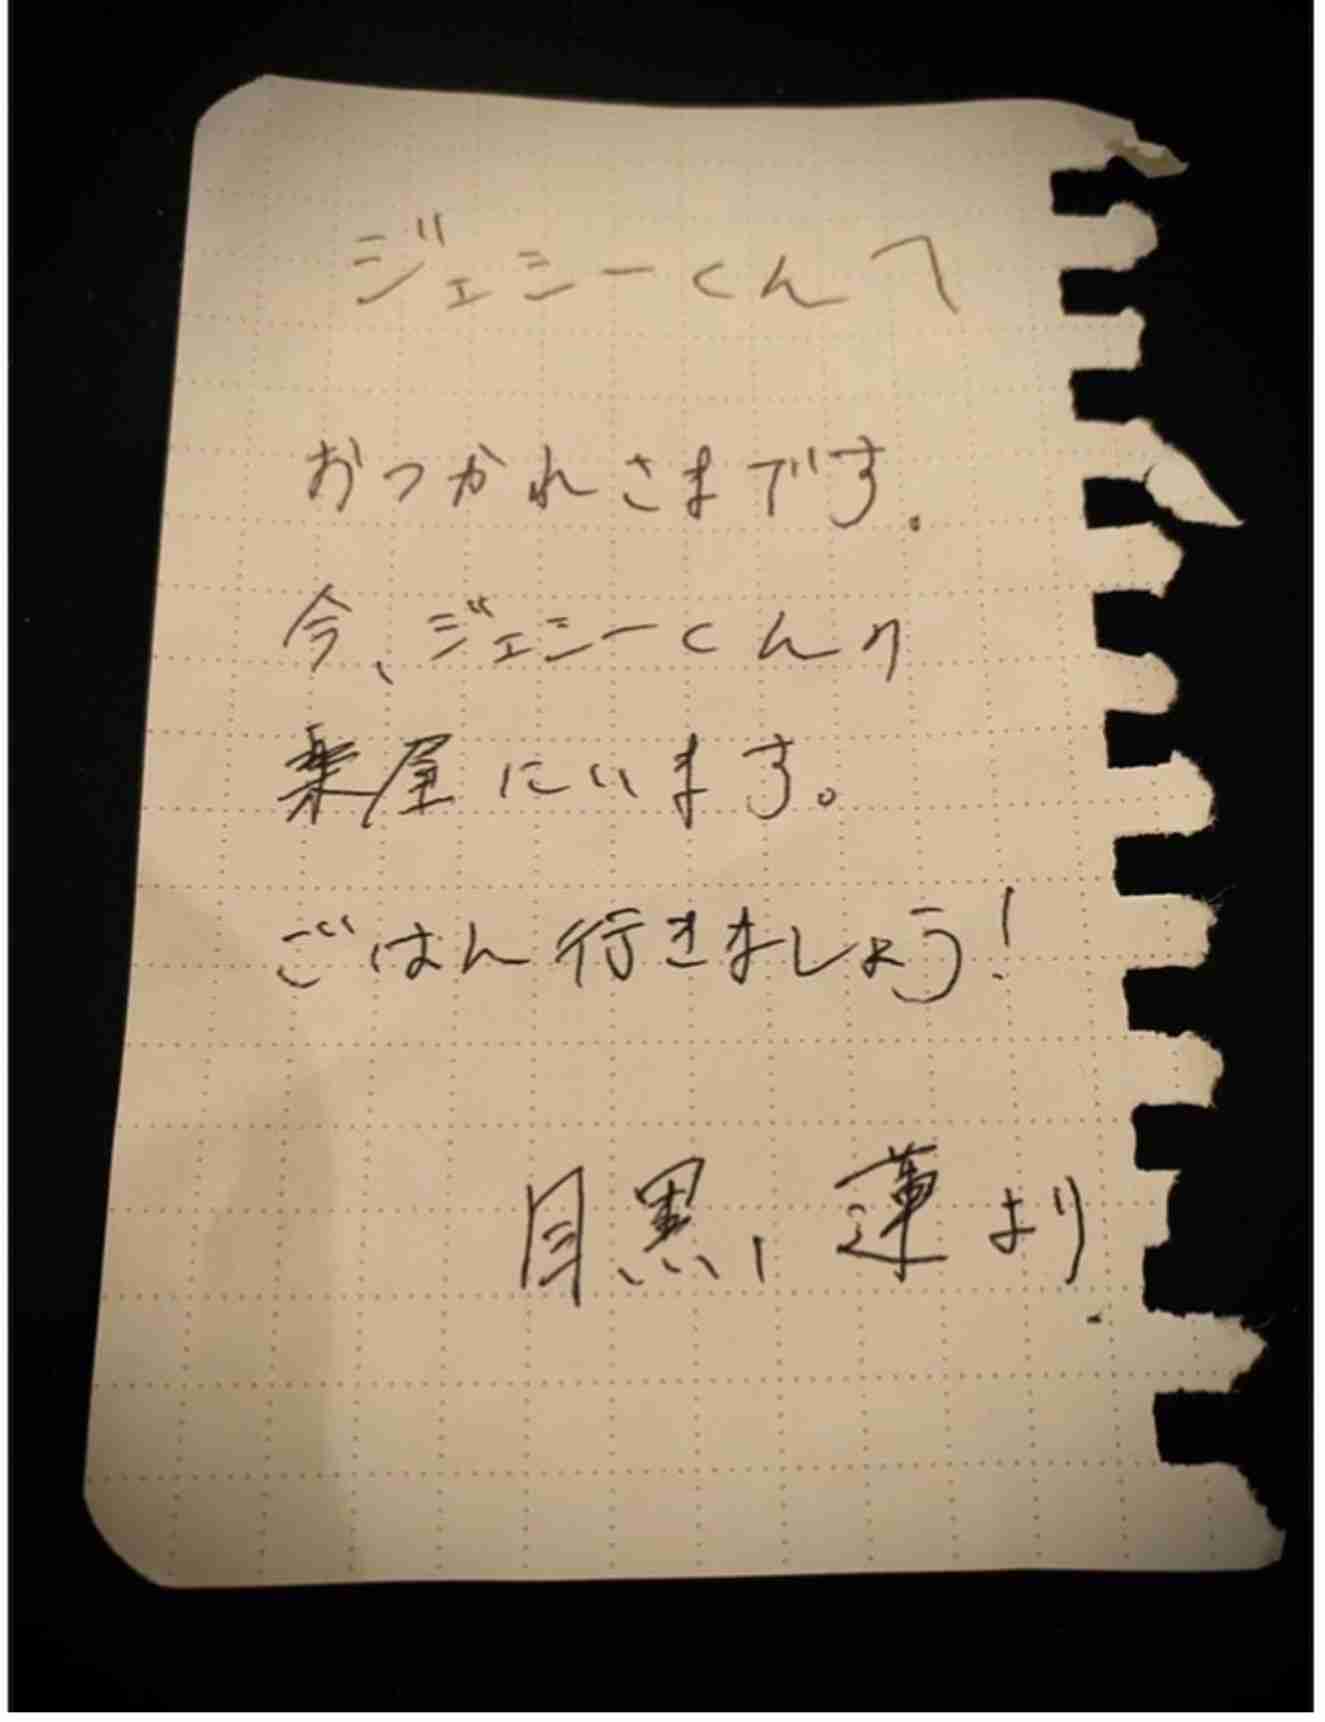 ジェシーくんへ
おつかれさまです.
今、ジェシーくんの
楽屋にいます。
ごはん行きましょう!
目黒, 蓮より